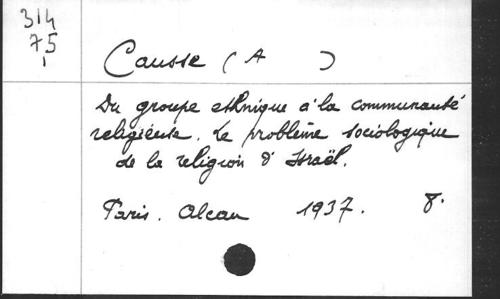 314
75
1
Causse (A )
Du groupe ethnique à la communauté
religieuse. Le problème sociologique
de la religion d'Israël.
Paris. Alcan 1937. 8.